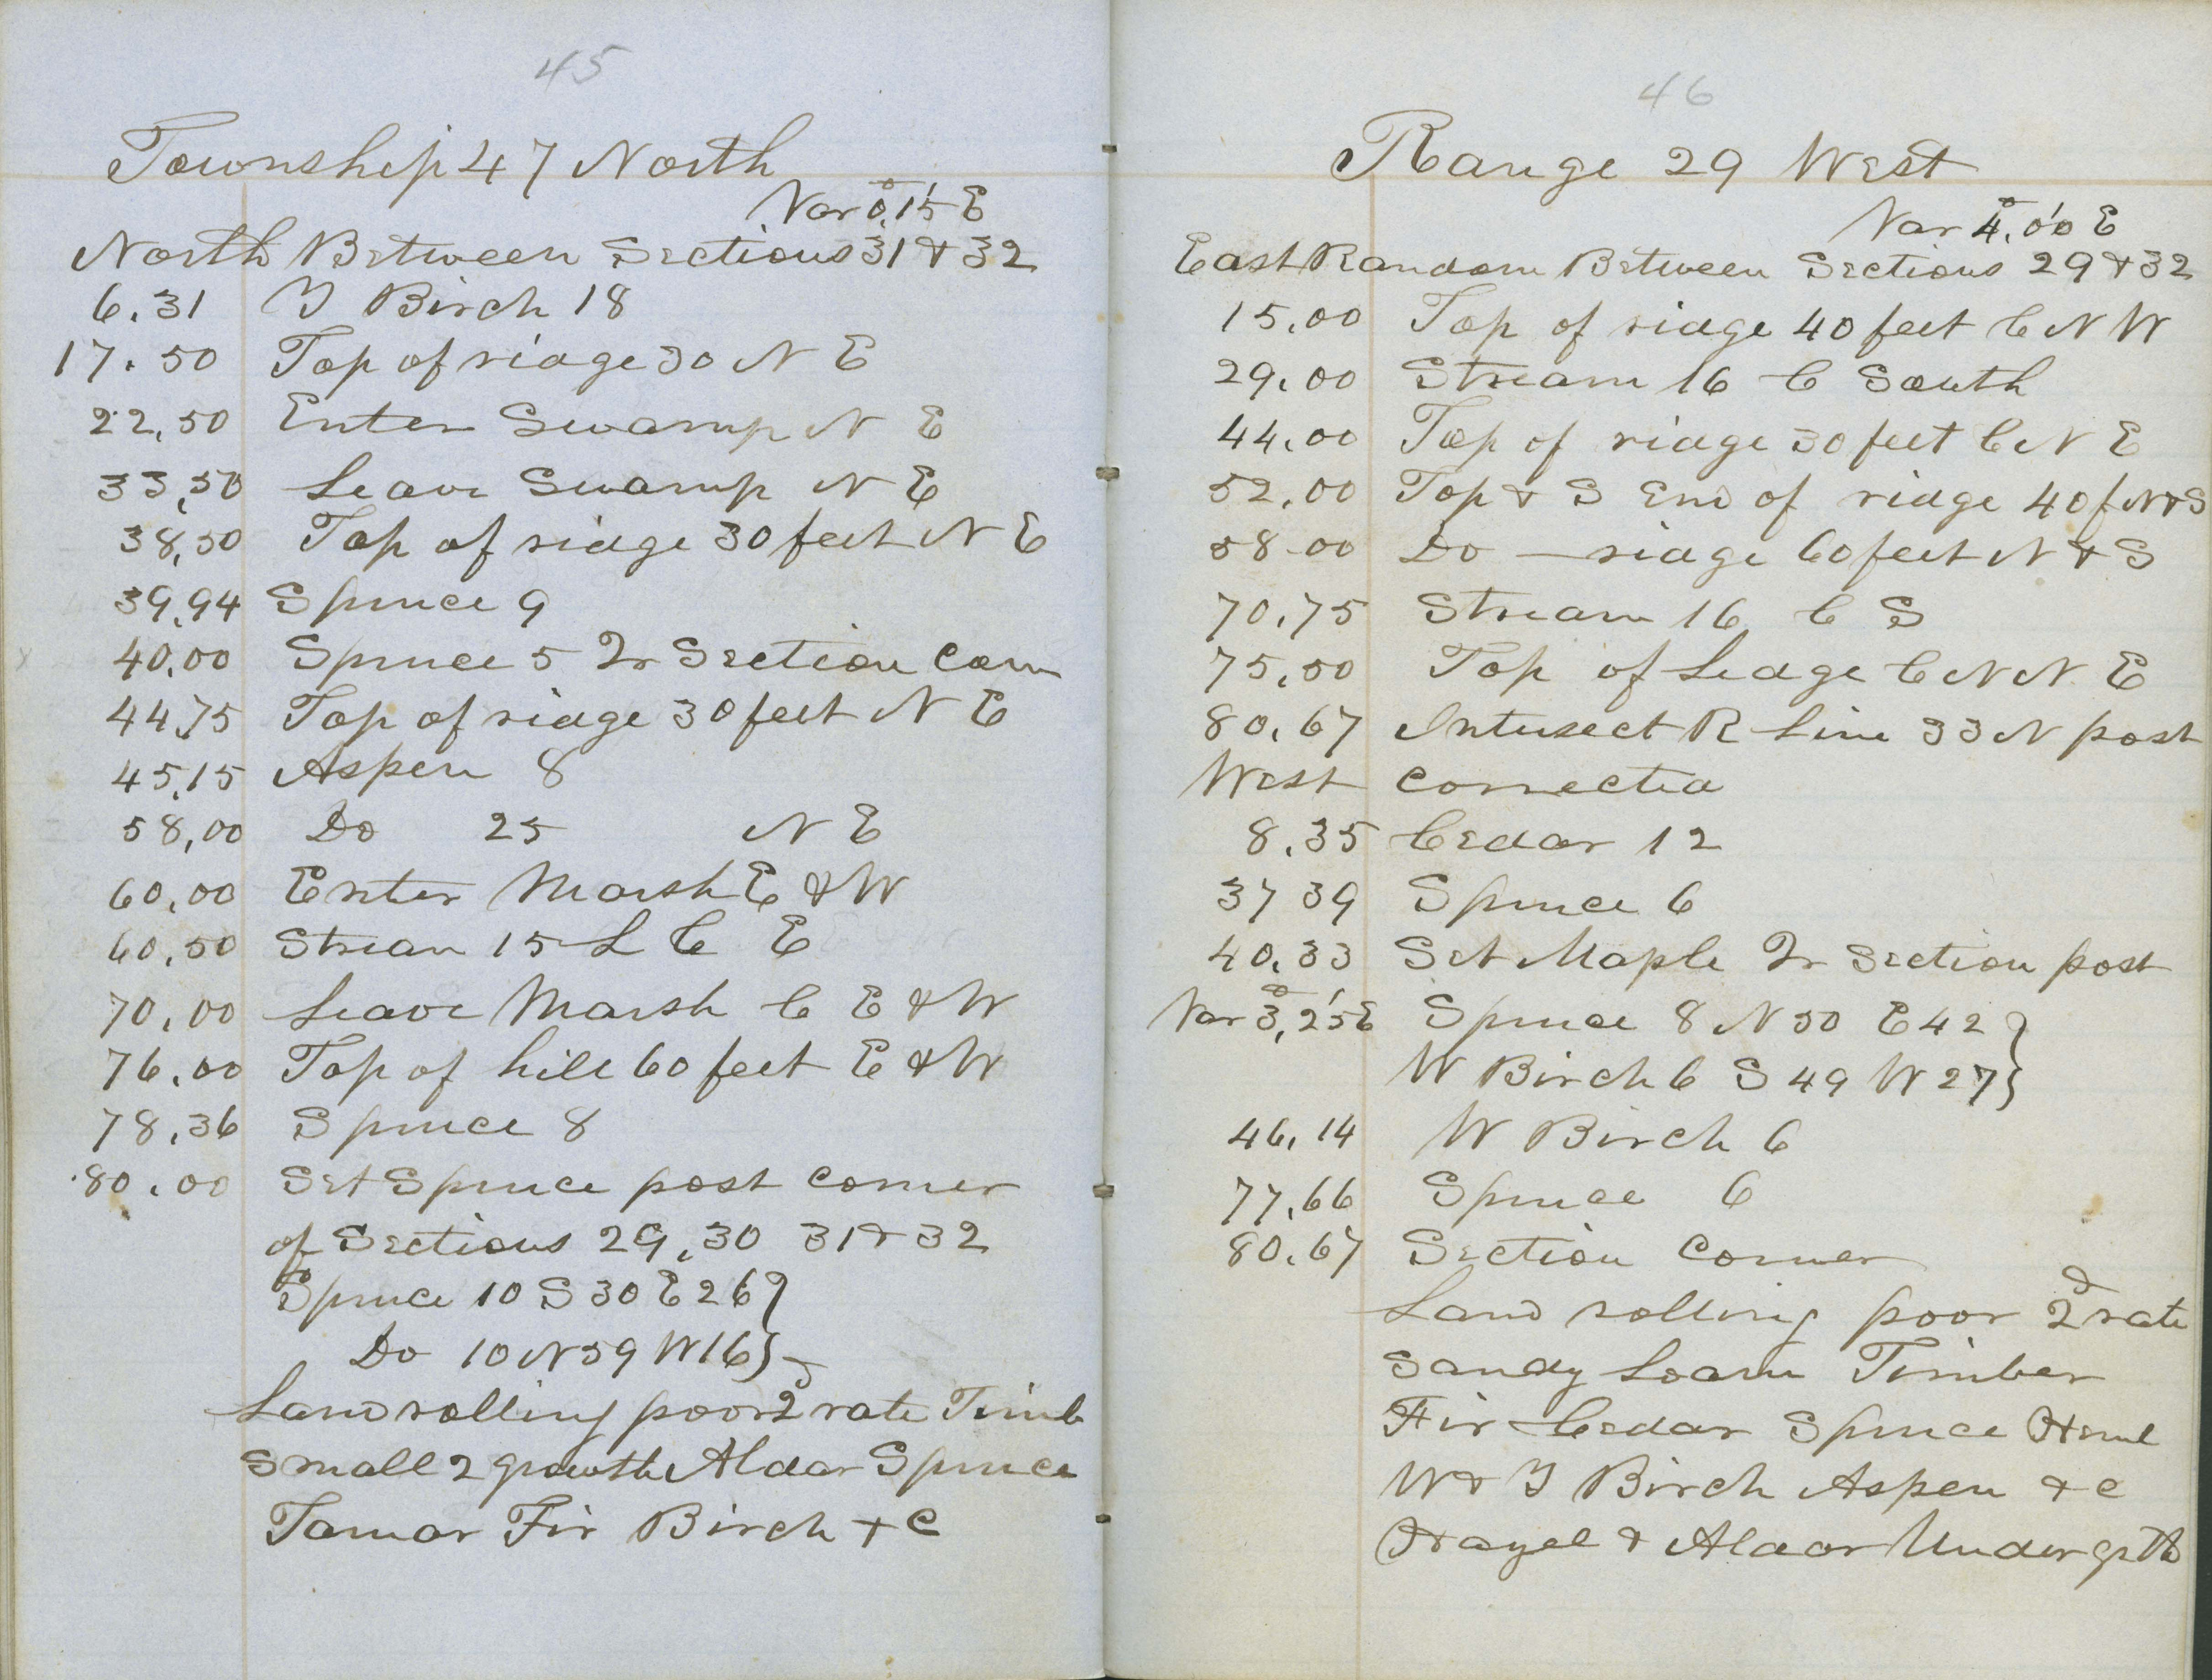 45
Township 47 North
Var 0°,15' E
North Between Sections 31 & 32
6.31 Y Birch 18
17.50 Top of ridge 30 N E
22,50 Enter Swamp N E
33,50 Leave Swamp N E
38,50 Top of ridge 30 feet N E
39,94 Spruce 9
40,00 Spruce 5 Qr Section Corn
44,75 Top of ridge 30 feet N E
45,15 Aspen 8
58,00 Do 25 N E
60,00 Enter Marsh E & W
60,50 Stream 15 L C E
70,00 Leave Marsh C E & W
76,00 Top of hill 60 feet E & W
78,36 Spruce 8
80,00 Set Spruce post corner
of Sections 29,30 31 & 32
Spruce 10 S 30 E 26 }
Do 10 N 59 W 16 }
Land rolling poor 2d rate Timb
Small 2 growth Aldar Spruce
Tamar Fir Birch + C
46
Range 29 West
Var 4°,00' E
East Random Between Sections 29 & 32
15,00 Top of ridge 40 feet C N W
29,00 Stream 16 C South
44,00 Top of ridge 30 feet C N E
52,00 Top & S End of ridge 40 f N & S
58-00 Do — ridge 60 feet N & S
70,75 Stream 16 C S
75,50 Top of Ledge C N N E
80,67 Intersect R Line 33 N post
West Corrected
8,35 Cedar 12
37 39 Spruce 6
40,33 Set Maple Qr Section post
Var 3°,25' E Spruce 8 N 50 E 42 }
W Birch 6 S 49 W 27 }
46,14 W Birch 6
77,66 Spruce 6
80,67 Section Corner
Land rolling poor 2d rate
Sandy Loam Timber
Fir Cedar Spruce Heml
W & Y Birch Aspen & c
Hazel & Aldar Under grth